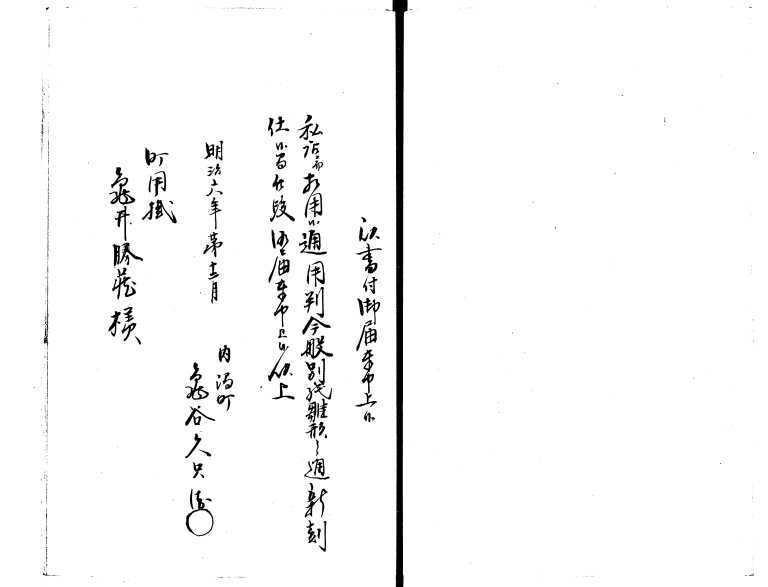 以書付御届奉申上候
私店ニ而相用候通用判今般別紙雛形之通新刻
仕候間此段御届奉申上候以上
明治六年第十二月
内潟町
亀谷久兵衛
町用掛
亀井勝蔵様